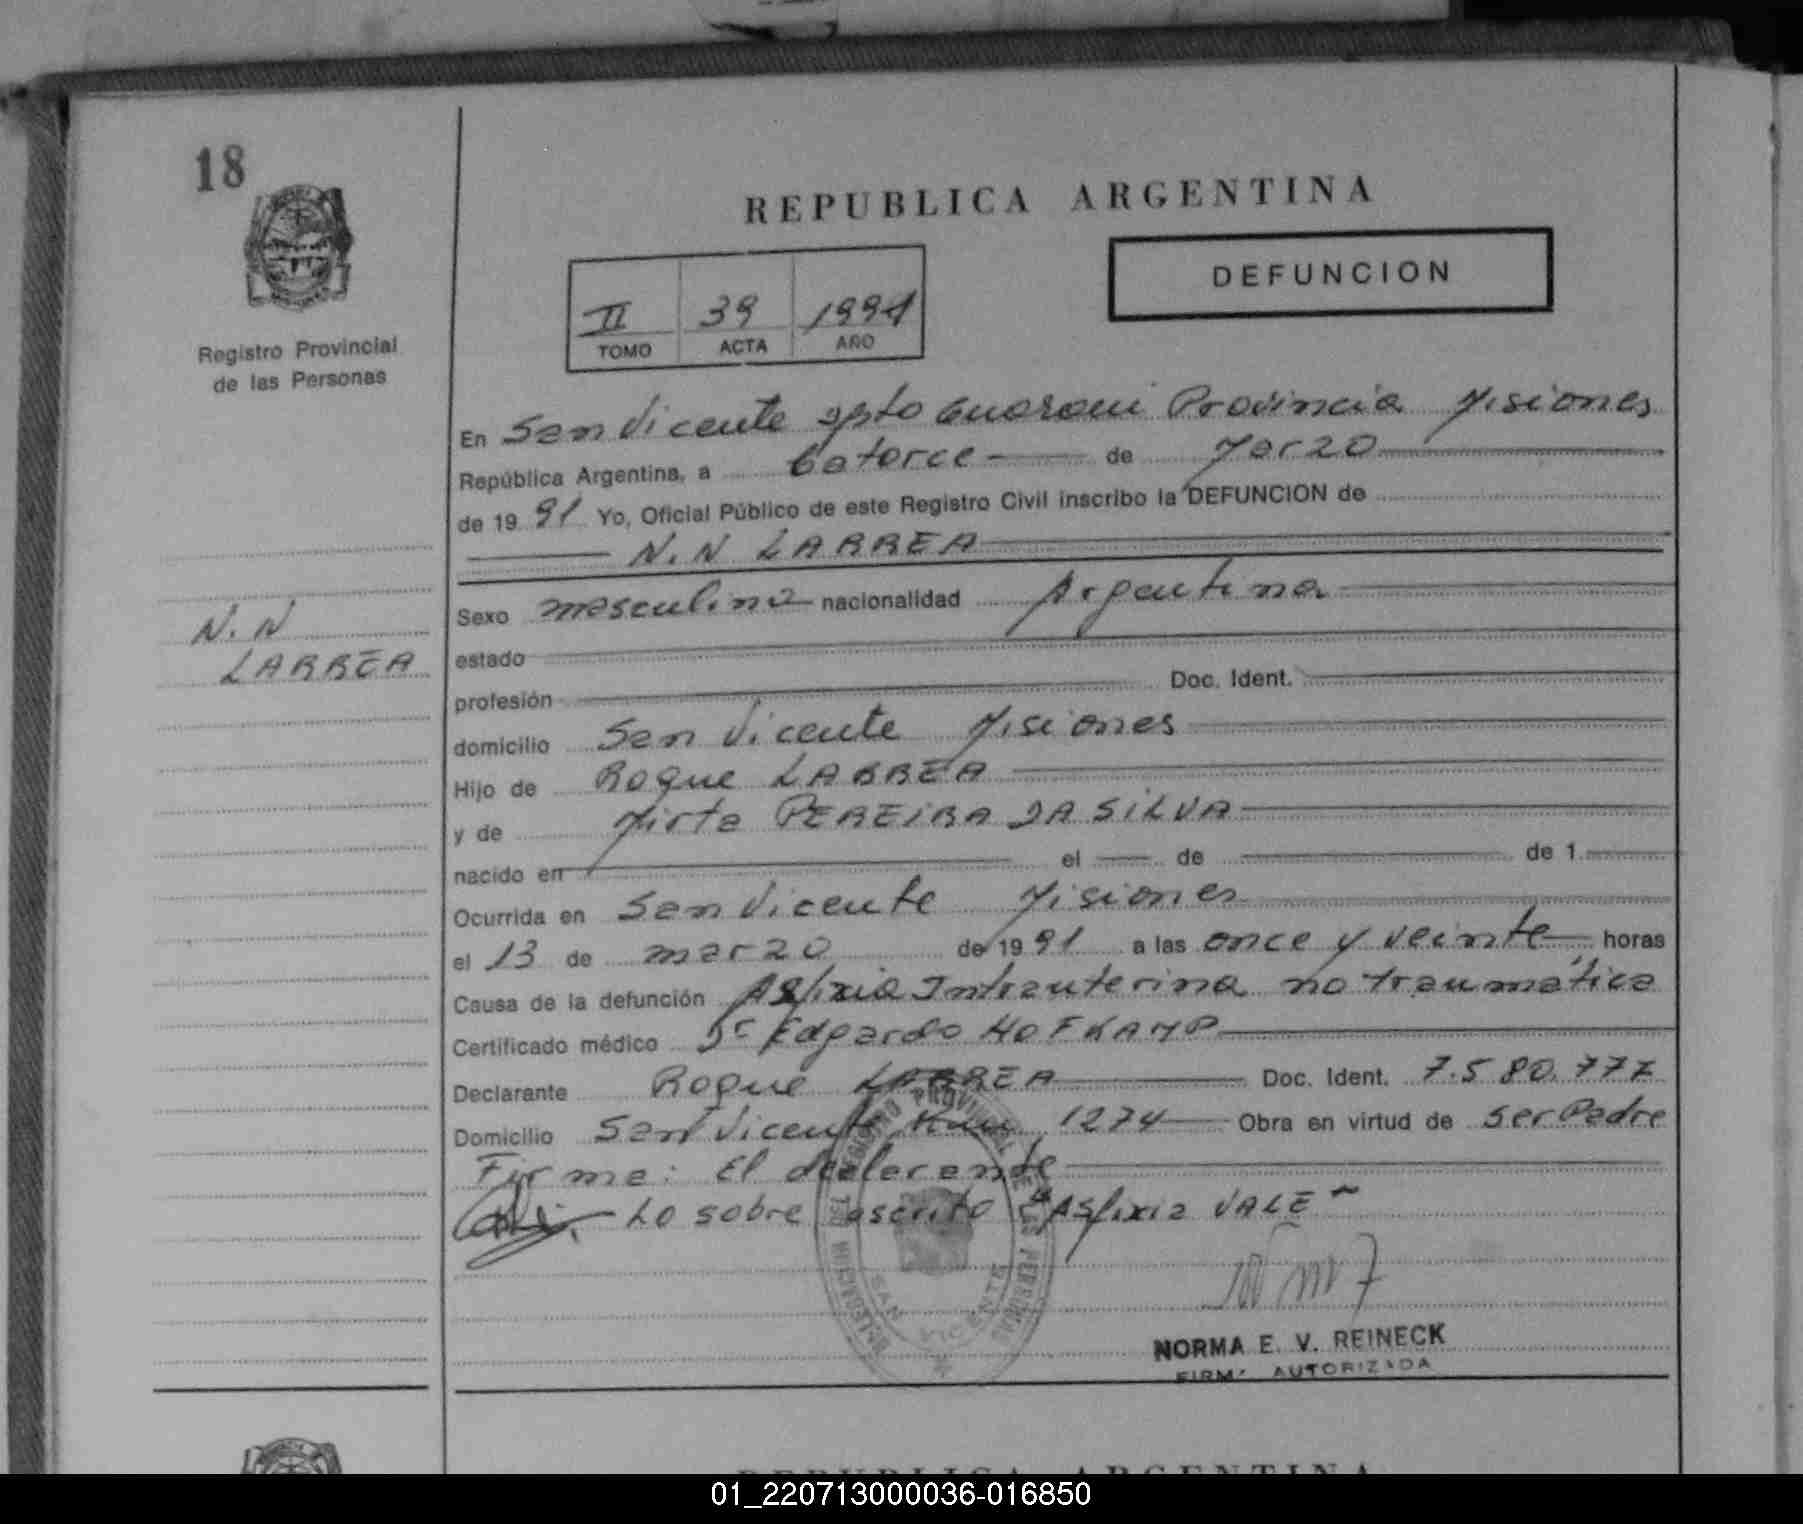 18
REPUBLICA ARGENTINA
DEFUNCION
II 39 1991
TOMO ACTA AÑO
Registro Provincial
de las Personas
En San Vicente Dpto Guarani Provincia Misiones
República Argentina, a Catorce de Marzo
de 19 91 Yo, Oficial Público de este Registro Civil inscribo la DEFUNCION de
N.N LARREA
N.N
LARREA
Sexo masculino nacionalidad Argentina
estado
profesión Doc. Ident.
domicilio San Vicente Misiones
Hijo de Roque LARREA
y de Mirta PEREIRA DA SILVA
nacido en el de de 1
Ocurrida en San Vicente Misiones
el 13 de marzo de 19 91 a las once y veinte horas
Causa de la defunción Asfixia Intrauterina no traumática
Certificado médico Dr Edgardo HOFKAMP
Declarante Roque LARREA Doc. Ident. 7.580.777
Domicilio San Vicente Km 1274 Obra en virtud de ser Padre
Firma: El declarante
Lo sobre ascrito "Asfixia VALE"
REGISTRO PROVINCIAL DE LAS PERSONAS
SAN VICENTE
NORMA E. V. REINECK
FIRMA AUTORIZADA
REPUBLICA ARGENTINA
01_220713000036-016850